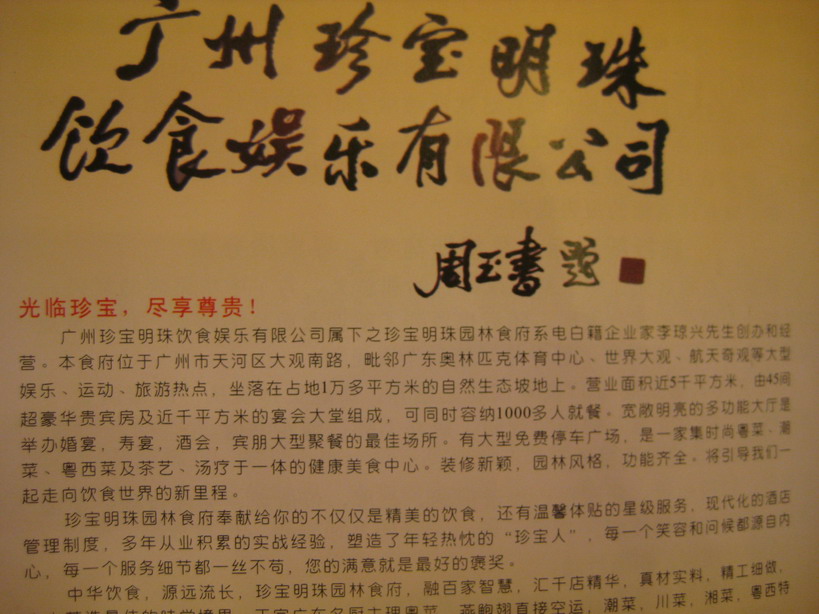 广州珍宝明珠
饮食娱乐有限公司
周玉书题
光临珍宝，尽享尊贵！
广州珍宝明珠饮食娱乐有限公司属下之珍宝明珠园林食府系电白籍企业家李琼兴先生创办和经
营。本食府位于广州市天河区大观南路，毗邻广东奥林匹克体育中心、世界大观、航天奇观等大型
娱乐、运动、旅游热点，坐落在占地1万多平方米的自然生态坡地上。营业面积近5千平方米，由45间
超豪华贵宾房及近千平方米的宴会大堂组成，可同时容纳1000多人就餐。宽敞明亮的多功能大厅是
举办婚宴，寿宴，酒会，宾朋大型聚餐的最佳场所。有大型免费停车广场，是一家集时尚粤菜、潮
菜、粤西菜及茶艺、汤疗于一体的健康美食中心。装修新颖，园林风格，功能齐全。将引导我们一
起走向饮食世界的新里程。
珍宝明珠园林食府奉献给你的不仅仅是精美的饮食，还有温馨体贴的星级服务，现代化的酒店
管理制度，多年从业积累的实战经验，塑造了年轻热忱的“珍宝人”，每一个笑容和问候都源自内
心，每一个服务细节都一丝不苟，您的满意就是最好的褒奖。
中华饮食，源远流长，珍宝明珠园林食府，融百家智慧，汇千店精华，真材实料，精工细做，
主理粤菜，燕鲍翅直接空运，潮菜、川菜，湘菜，粤西特